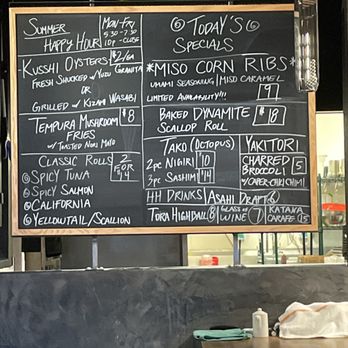 Summer
Happy Hour
Mon-Fri
5:30-7:30
10p-Close
Kusshi Oysters $2/ea
Fresh Shucked w/ Yuzu Granita
or
Grilled w/ Kizami Wasabi
Tempura Mushroom $8
Fries
w/ Twisted Nori Mayo
Classic Rolls 2 for $14
Spicy Tuna
Spicy Salmon
California
Yellowtail/Scallion
Today's
Specials
*Miso Corn Ribs*
Umami Seasoning | Miso Caramel
Limited Availability!!! 9
Baked Dynamite $18
Scallop Roll
Tako (Octopus)
2pc Nigiri $10
3pc Sashimi $14
Yakitori
Charred 5
Broccoli
w/ Caper Chimichimi
HH Drinks
Asahi Draft 6
Tora Highball 8
Glass of Wine 7
Katana Carafe 15